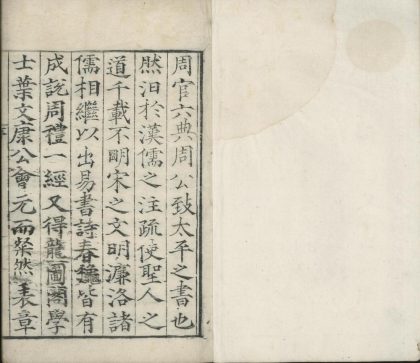 周官六典周公致太平之書也
然汨於漢儒之注疏使聖人之
道千載不明宋之文明濂洛諸
儒相繼以出易書詩春秋皆有
成說周禮一經又得龍圖閣學
士葉文康公會元而粲然表章